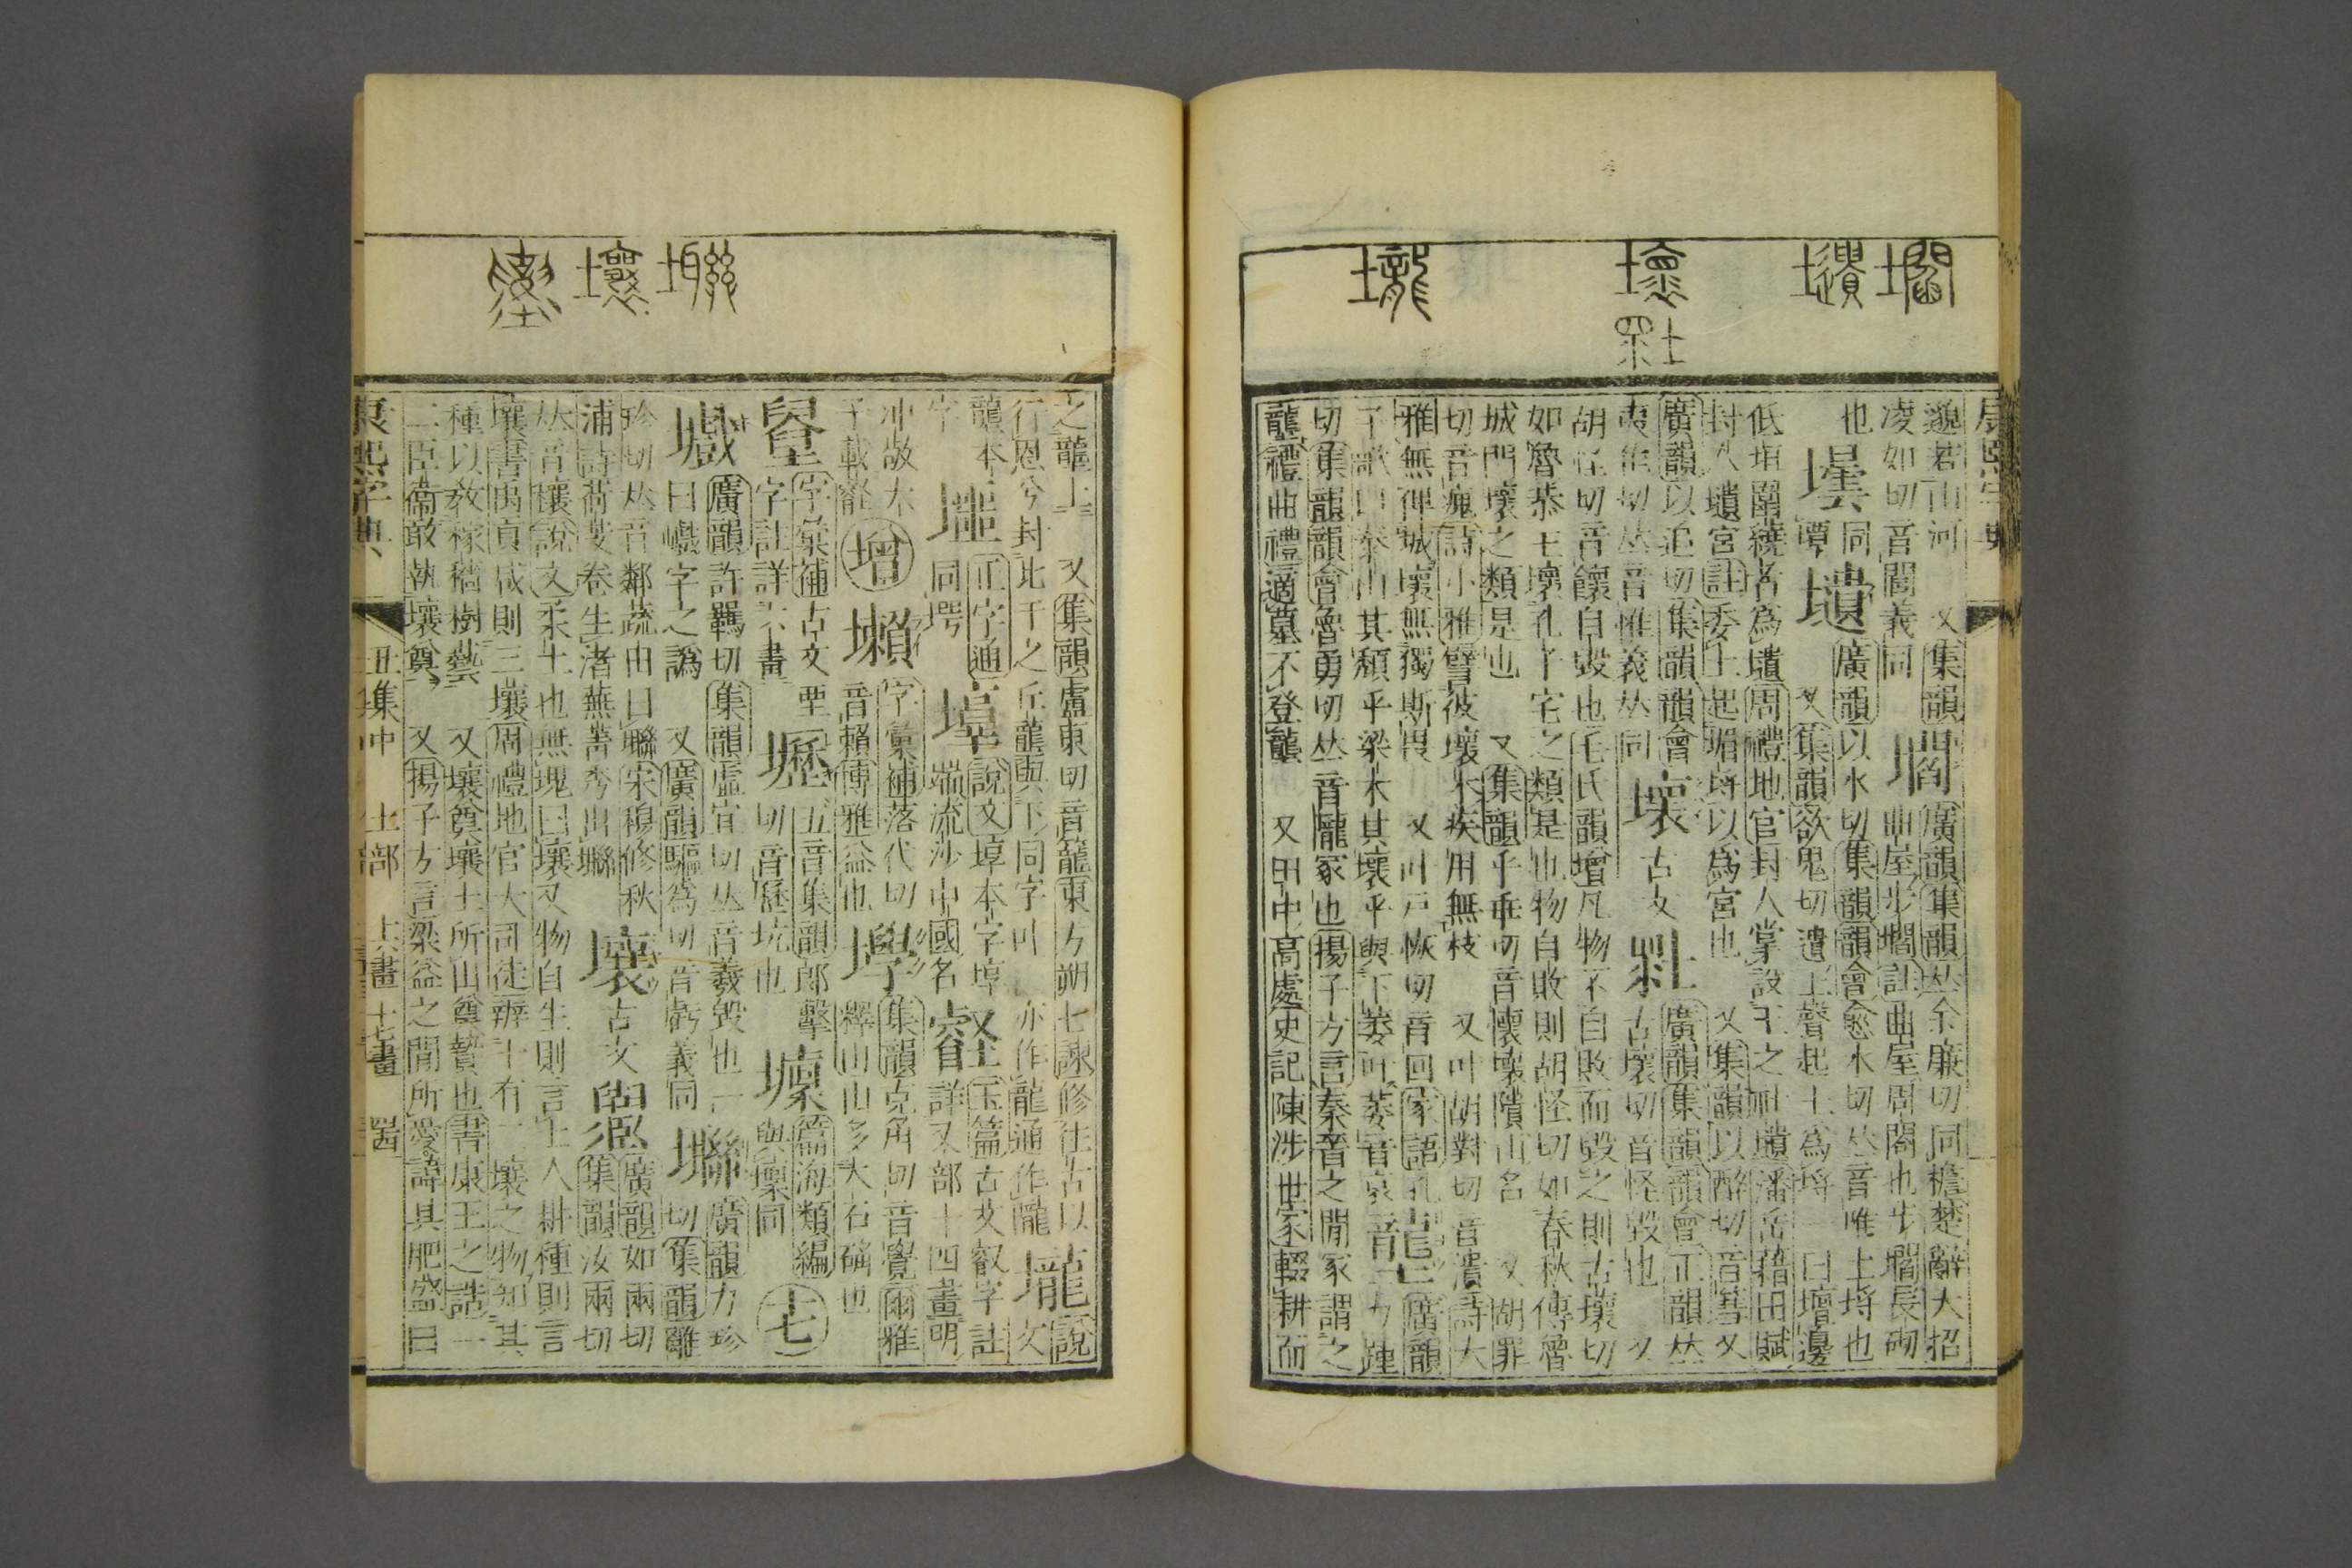 邈若山河　又集韻
閻廣韻集韻𠀤余廉切同檐楚辭大招
凌如切音閻義同
曲屋步壛註曲屋周閣也步壛長砌
也
壜同罈
壝廣韻以水切集韻韻會愈水切𠀤音唯土埒也
又集韻欲鬼切遺上聲起土為埒一曰壇邊
低垣圍繞者為壝周禮地官封人掌設王之社壝潘岳藉田賦
封人壝宮註委土起堳埒以為宮也　又集韻以醉切音䔺又
廣韻以追切集韻韻會
夷隹切𠀤音惟義𠀤同
壞古文
𡊅廣韻集韻韻會正韻𠀤
古壞切音怪毀也　又
胡怪切音懷自毀也毛氏韻增凡物不自敗而毀之則古壞切
如魯恭王壞孔子宅之類是也物自敗則胡怪切如春秋傳魯
城門壞之類是也　又集韻乎乖切音懷壞隤山名　又胡罪
切音瘣詩小雅譬彼壞木疾用無枝　又叶胡對切音潰詩大
雅無俾城壞無獨斯畏　又叶戸恢切音回家語孔
子歌曰泰山其頹乎梁木其壞乎與下萎叶萎音
壟廣韻
力踵
切集韻韻會魯勇切𠀤音隴冢也揚子方言秦晉之閒冢謂之
壟禮曲禮適墓不登壟　又田中高處史記陳涉世家輟耕而
之壟上　又集韻盧東切音籠東方朔七諫修往古以
行恩兮封比干之丘壟與下同字叶　亦作壠通作隴
壠說文
壟本
字
正字通
同堮
說文埻本字埻
端流沙中國名
壡玉篇古文叡字註
詳又部十四畫明
冲敞木
子載壡
增
壈字彙補落代切
音賴博雅益也
壆集韻克角切音覺爾雅
釋山山多大石礐也
字彙補古文堊
字註詳八畫
壢五音集韻郎擊
切音歷坑也
壈篇海類編
與壈同
十七
壏廣韻許羈切集韻虛宜切𠀤音羲毀也一
曰巇字之譌　又廣韻驅為切音虧義同
廣韻力珍
切集韻離
珍切𠀤音鄰蔬由曰
宋穆修秋
浦詩荷芰卷生渚蕪菁秀出
壤古文
廣韻如兩切
集韻汝兩切
𠀤音穰說文柔土也無塊曰壤又物自生則言土人耕種則言
壤書禹貢咸則三壤周禮地官大司徒辨十有二壤之物知其
種以敎稼穡樹藝　又壤奠壤土所出奠贄也書康王之誥一
二臣衞敢執壤奠　又揚子方言梁益之閒所愛諱其肥盛曰
康熙字典　丑集中　土部　十六畫 十七畫